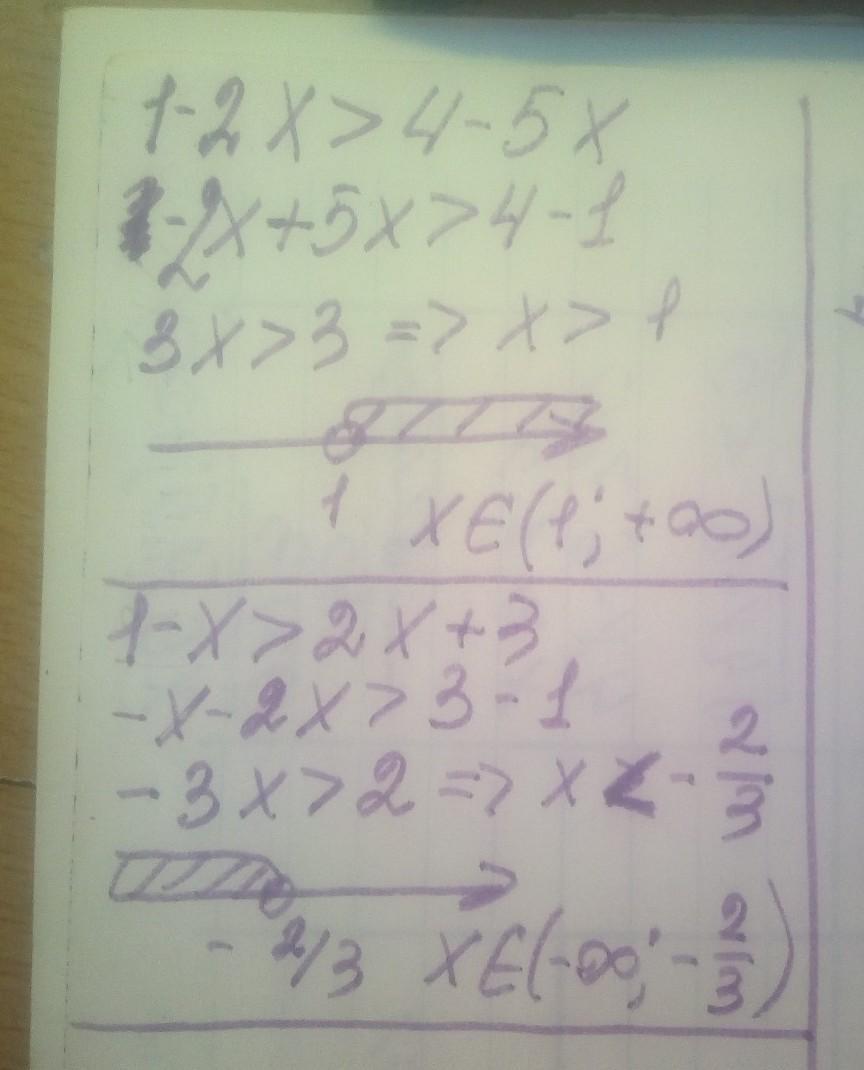 1-2x>4-5x
-2x+5x>4-1
3x>3 => x>1
1
x∈(1; +∞)
1-x>2x+3
-x-2x>3-1
-3x>2 => x<-2/3
-2/3
x∈(-∞; -2/3)